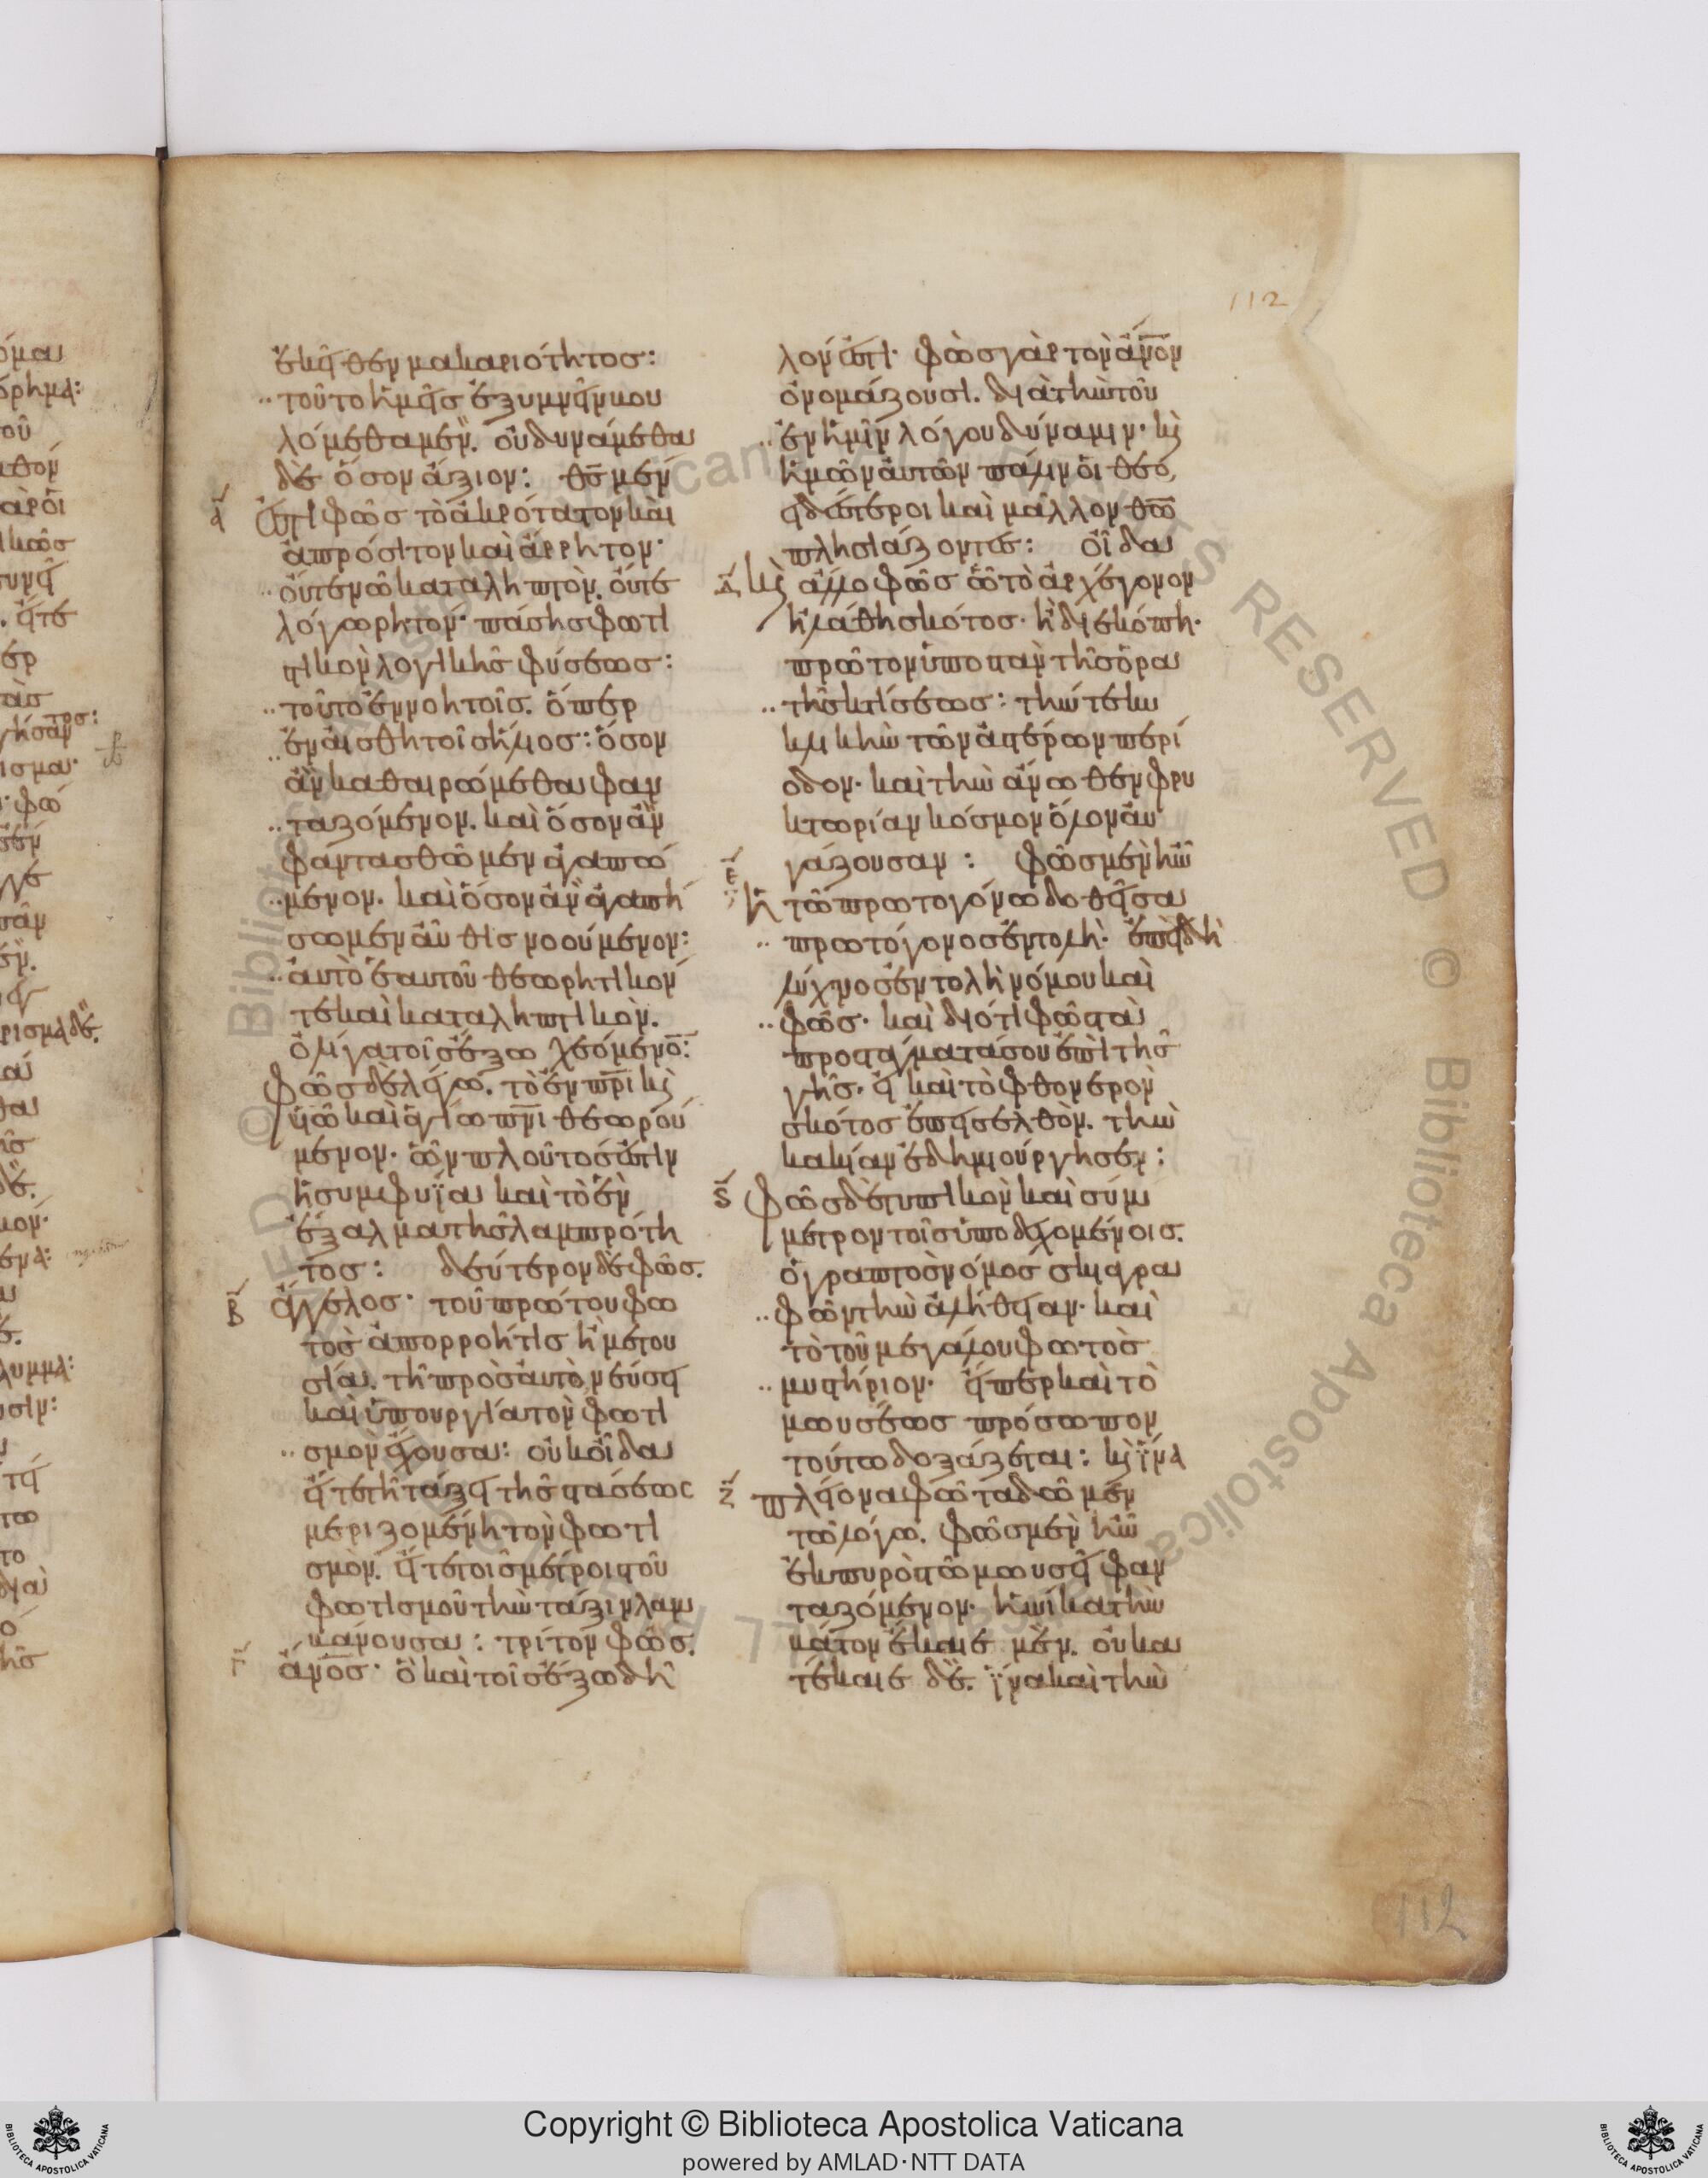 112
ἐκεῖθεν μακαριότητος:
τοῦτο ἡμᾶς ἐξυμνεῖν κου
λόμεθα μέν. οὐ δυνάμεθα
δὲ ὅσον ἄξιον: θς μέν
ᾱ ἐστι φῶς τὸ ἀκρότατον καὶ
ἀπρόσιτον καὶ ἄρρητον·
οὔτε νῶ καταληπτὸν. οὔτε
λόγω ρητόν· πάσης φωτι
στικὸν λογικῆς φύσεως:
τοῦτο ἐν νοητοῖς. ὅπερ
ἐν αἰσθητοῖς ἥλιος: ὅσον
ἂν καθαιρώμεθα φαν
ταζόμενον. καὶ ὅσον ἂν
φαντασθῶμεν ἀγαπώ
μενον. καὶ ὅσον ἂν ἀγαπή
σωμεν αὖθις νοούμενον:
αὐτὸ ἑαυτοῦ θεωρητικόν
τε καὶ καταληπτικὸν.
ὀλίγα τοῖς ἔξω χεόμενο:
φῶς δὲ λέγω. τὸ ἐν πρι κ
υἱῶ καὶ ἁγίω πνι θεωρού
μενον. ὧν πλοῦτός ἐστιν
ἡ συμφυΐα καὶ τὸ ἓν
ἔξαλμα τῆς λαμπρότη
τος: δεύτερον δὲ φῶς.
β̄ ἄγγελος· τοῦ πρώτου φω
τὸς ἀπορροή τις ἢ μετου
σία. τῇ πρὸς αὐτὸ νεύσει
καὶ ὑπουργία τὸν φωτι
σμὸν ἔχουσα: οὐκ οἶδα
εἴτε τῆ τάξει τῆς στάσεως
μεριζομένη τὸν φωτι
σμὸν. εἴτε τοῖς μέτροις τοῦ
φωτισμοῦ τὴν τάξιν λαμ
βάνουσα: τρίτον φῶς.
γ̄ ἄνος· ὃ καὶ τοῖς ἔξω δῆ
λόν ἐστι· φῶς γὰρ τὸν ἄνον
ὀνομάζουσι. διὰ τὴν τοῦ
ἐν ἡμῖν λόγου δύναμιν· κ
ἡμῶν αὐτῶν πάλιν οἱ θεο
ειδέστεροι καὶ μᾶλλον θῶ
πλησιάζοντες: οἶδα
δ̄ κ ἄλλο φῶς ὧ τὸ ἀρχέγονον
ἠλάθη σκότος· ἢ διεκόπη·
πρῶτον ὑποστὰν τῆς ὁρα
τῆς κτίσεως: τήν τε κυ
κλικὴν τῶν ἀστέρων περί
οδον· καὶ τὴν ἄνωθεν φρυ
κτωρίαν κόσμον ὅλον αὐ
γάζουσαν: φῶς μὲν ἦν
ε̄ ἡ τῶ πρωτογόνω δοθεῖσα
πρωτόγονος ἐντολὴ· ἐπειδὴ
λύχνος ἐντολὴ νόμου καὶ
φῶς· καὶ διότι φῶς τὰ
προστάγματά σου ἐπὶ τῆς
γῆς· εἰ καὶ τὸ φθονερὸν
σκότος ἐπεισελθὸν. τὴν
κακίαν ἐδημιούργησεν:
ς̄ φῶς δὲ τυπικὸν καὶ σύμ
μετρον τοῖς ὑποδεχομένοις.
ὁ γραπτὸς νόμος σκιαγρα
φῶν τὴν ἀλήθειαν· καὶ
τὸ τοῦ μεγάλου φωτὸς
μυστήριον· εἴπερ καὶ τὸ
μωυσέως πρόσωπον
τούτω δοξάζεται: κ ἵνα
ζ̄ πλείονα φῶτα δῶμεν
τῶ λόγω. φῶς μὲν ἦν
ἐκ πυρὸς τῶ μωυσεῖ φαν
ταζόμενον· ἡνίκα τὴν
βάτον ἔκαιε μὲν. οὐ κα
τέκαιε δὲ. ἵνα καὶ τὴν
112
Copyright © Biblioteca Apostolica Vaticana
powered by AMLAD·NTT DATA